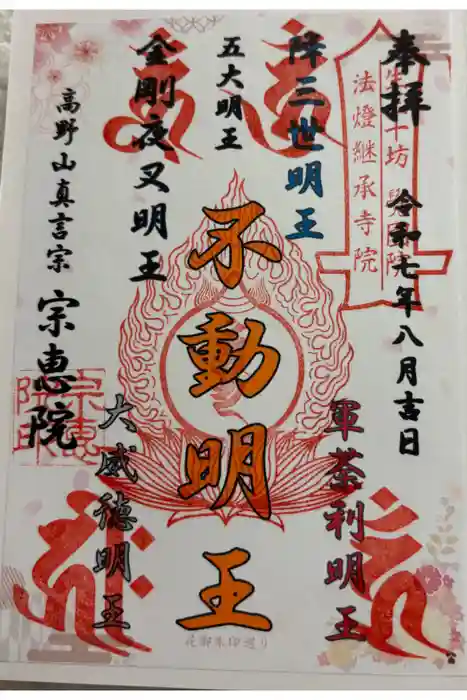 奉拝
令和七年八月吉日
法燈継承寺院
降三世明王
軍荼利明王
五大明王
不動明王
金剛夜叉明王
大威徳明王
高野山真言宗
宗恵院
花御朱印巡り
宗恵
院印